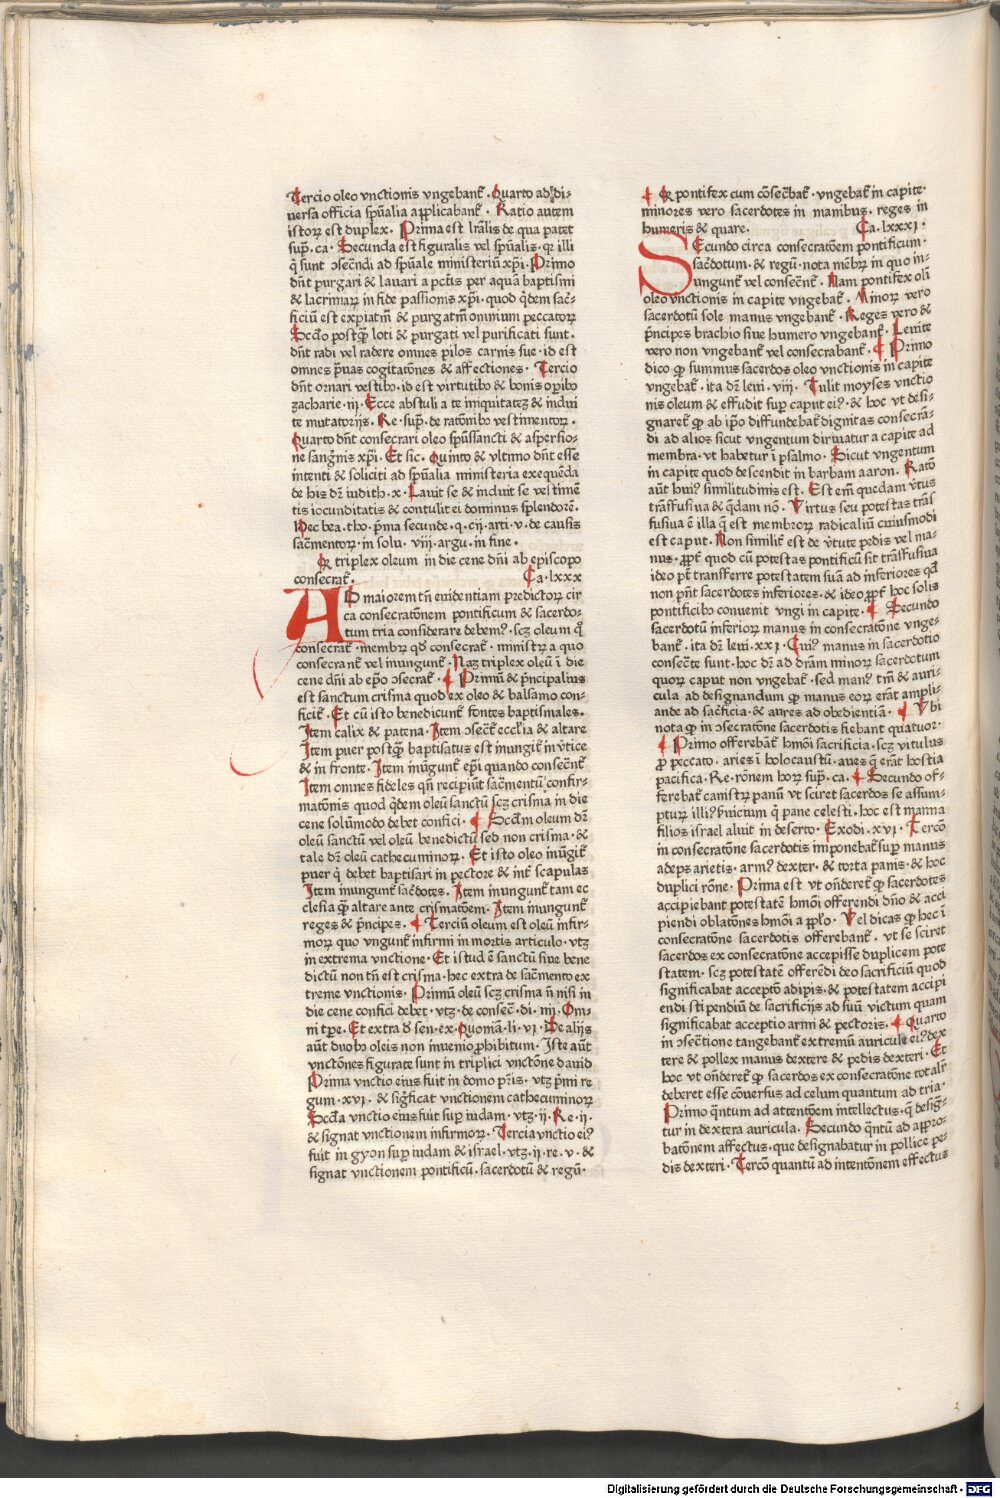 Tercio oleo vnctionis vngebant᷑ . Quarto ad di-
uersa officia sp̄ualia applicabant᷑ . Ratio autem
istoꝝ est duplex . Prima est lr̄alis de qua patet
sup̄ . ca . Secunda est figuralis vel sp̄ualis . qꝛ illi
q̄ sunt ↄsecn̄di ad sp̄uale ministeriū xp̄i . Primo
dn̄t purgari & lauari a pctīs per aquā baptismi
& lacrimaꝝ in fide passionis xp̄i . quod q̇dem sac̄-
ficiū est expiatm̄ & purgatm̄ omnium peccatoꝝ
Scd̄o postq̄ꝫ loti & purgati vel purificati sunt .
dn̄t radi vel radere omnes pilos carnis sue . id est
omnes prauas cogitatōnes & affectiones . Tercio
dn̄t ornari vestibꝰ . id est virtutibꝰ & bonis oꝑibꝰ
zacharie . iij . Ecce abstuli a te iniquitatēz & indui
te mutatorijs . Re . sup̄ . de ratonībꝰ vestimentoꝝ .
Quarto dn̄t consecrari oleo sp̄ussancti & aspersio-
ne sangīnis xp̄i . Et sic . Quinto & vltimo dn̄t esse
intenti & soliciti ad sp̄ualia ministeria exequēda
de his dr̄ iudith . x . Lauit se & induit se vestimē
tis iocunditatis & contulit ei dominus splendorē .
Hec bea . tho . p̄ma secunde . q . cij . arti . v . de causis
sac̄mentoꝝ . in solu . viij . argu . in fine .
Qꝛ triplex oleum in die cene dn̄i ab episcopo
consecrat᷑ . Ca . lxxx
AD maiorem tn̄ euidentiam predictoꝝ cir
ca consecratōnem pontificum & sacerdo-
tum tria considerare debemꝰ . scꝫ oleum q̊
consecrat᷑ . membꝝ qd̄ consecrat᷑ . ministꝝ a quo
consecrant᷑ vel inungunt᷑ . Naꝫ triplex oleū ī die
cene dn̄i ab ep̄o ↄsecrat᷑ . ¶ Primū & p̄ncipalius
est sanctum crisma quod ex oleo & balsamo con-
ficit᷑ . Et cū isto benedicunt᷑ fontes baptismales .
Item calix & patena . Item ↄsecrt᷑ eccl̄ia & altare
Item puer postq̄ꝫ baptisatus est inungit᷑ in v̄tice
& in fronte . Item inūgunt᷑ ep̄i quando consecn̄t᷑
Item omnes fideles qn̄ recipiūt sac̄mentū confir-
matōnis quod q̇dem oleū sanctū scꝫ crisma in die
cene solūmodo debet confici . ¶ Scd̄m oleum dr̄
oleū sanctū vel oleū benedictū sed non crisma . &
tale dr̄ oleū cathecuminoꝝ . Et isto oleo inūgit᷑
puer q̄ debet baptisari in pectore & int᷑ scapulas
Item inungunt᷑ sac̄dotes . Item inungunt᷑ tam ec
clesia q̄ꝫ altare ante crismatōem . Item inungunt᷑
reges & p̄ncipes . ¶ Terciū oleum est oleū infir-
moꝝ quo vngunt᷑ infirmi in mortis articulo . vtꝫ
in extrema vnctione . Et istud ē sanctū siue bene
dictū non tn̄ est crisma . hec extra de sac̄mento ex
treme vnctionis . Primū oleū scꝫ crisma n̄ nisi in
die cene confici debet . vtꝫ . de consec̄ . di . iiij . Om-
ni tꝑe . Et extra d̄ sen . ex . Quoniā . li . vj . De alijs
aūt duobꝰ oleis non inuenio ꝓhibitum . Iste aūt
vnctōnes figurate sunt in triplici vnctōne dauid
Prima vnctio eius fuit in domo pr̄is . vtꝫ p̄mi re
gum . xvj . & signīficat vnctionem cathecuminoꝝ
Scd̄a vnctio eius fuit suꝑ iudam . vtꝫ . ij . Re . ij .
& signat vnctionem infirmoꝝ . Tercia vnctio eiꝰ
fuit in gyon suꝑ iudam & israel . vtꝫ . ij . re . v . &
signat vnctionem pontificū . sacerdotū & regū .
¶ Qꝛ pontifex cum cōsec̄bat᷑ . vngebat᷑ in capite .
minores vero sacerdotes in manibus . reges in
humeris & quare . Ca . lxxxj .
SEcundo circa consecratōem pontificum .
sac̄dotum . & regū . nota mēbꝝ in quo in-
ungunt᷑ vel consecn̄t᷑ . Nam pontifex oli
oleo vnctionis in capite vngebat᷑ . Minoꝝ vero
sacerdotū sole manus vngebant᷑ . Reges vero &
p̄ncipes brachio siue humero vngebant᷑ . Leuite
vero non vngebant᷑ vel consecrabant᷑ . ¶ Primo
dico ꝙ summus sacerdos oleo vnctionis in capite
vngebat᷑ . ita dr̄ leui . viij . Tulit moyses vnctio
nis oleum & effudit suꝑ caput eiꝰ . & hoc vt desi-
gnaret᷑ ꝙ ab ip̄o diffundebat᷑ dignitas consecrā-
di ad alios sicut vngentum diriuatur a capite ad
membra . vt habetur ī psalmo . Sicut vngentum
in capite quod descendit in barbam aaron . Ratō
aūt huiꝰ similitudinis est . Est em̄ quedam v̄tus
trāsfusiua & q̄dam nō . Virtus seu potestas trās
fusiua ē illa q̄ est membroꝝ radicaliū cuiusmodi
est caput . Non similit᷑ est de v̄tute pedis vel ma-
nus . ꝓpt᷑ quod cū potestas pontificū sit trāsfusiua
ideo pt̄ transferre potestatem suā ad inferiores qd̄
non pn̄t sacerdotes inferiores . & ideo ꝓpt᷑ hoc solis
pontificibꝰ conuenit vngi in capite . ¶ Secundo
sacerdotū inferioꝝ manus in consecratōne vnge-
bant᷑ . ita dr̄ leui . xxj . Cuiꝰ manus in sacerdotio
consecrt̄e sunt . hoc dr̄ ad dr̄am minoꝝ sacerdotum
quoꝝ caput non vngebat᷑ . sed manꝰ tm̄ & auri-
cula ad designandum ꝙ manus eoꝝ erāt ampli-
ande ad sac̄ficia . & aures ad obedientiā . ¶ Vbi
nota ꝙ in ↄsecratōne sacerdotis fiebant quatuor .
¶ Primo offerebāt᷑ hmōi sacrificia . scꝫ vitulus
ꝓ peccato . aries ī holocaustū . aues q̄ erāt hostia
pacifica . Re . rōnem hoꝝ sup̄ . ca . ¶ Secundo of-
ferebat᷑ canistꝝ panū vt sciret sacerdos se assum-
ptuꝝ illiꝰ victum q̇ pane celesti . hoc est manna
filios israel aluit in deserto . Exodi . xvj . Tercō
in consecratōne sacerdotis imponebat᷑ suꝑ manus
adeps arietis . armꝰ dexter . & torta panis . & hoc
duplici rōne . Prima est vt on̄deret᷑ ꝙ sacerdotes
accipiebant potestatē hmōi offerendi dn̄o & acci
piendi oblatōnes hmōi a pp̄lo . Vel dicas ꝙ hec ī
consecratōne sacerdotis offerebant᷑ . vt se sciret
sacerdos ex consecratōne accepisse duplicem pote
statem . scꝫ potestatē offerēdi deo sacrificiū quod
significabat acceptō adipis . & potestatem accipi
endi stipendiū de sacrificijs ad suū victum quam
significabat acceptio armi & pectoris . ¶ Quarto
in ↄsecrtione tangebant᷑ extremū auricule eiꝰ dex
tere & pollex manus dextere & pedis dexteri . Et
hoc vt on̄deret᷑ ꝙ sacerdos ex consecratōne totalr̄
deberet esse cōuersus ad celum quantum ad tria .
Primo q̄ntum ad attentōem intellectus . q̄ desig-
tur in dextera auricula . Secundo q̄ntū ad appro-
batōnem affectus . que designabatur in pollice pe-
dis dexteri . Tercō quantū ad intentōnem effectus
Digitalisierung gefördert durch die Deutsche Forschungsgemeinschaft - DFG